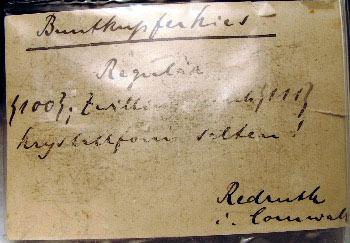 Buntkupferkies
Regulär
{100}; Zwilling nach {111}
Krystallform selten!
Redruth
i. Cornwall